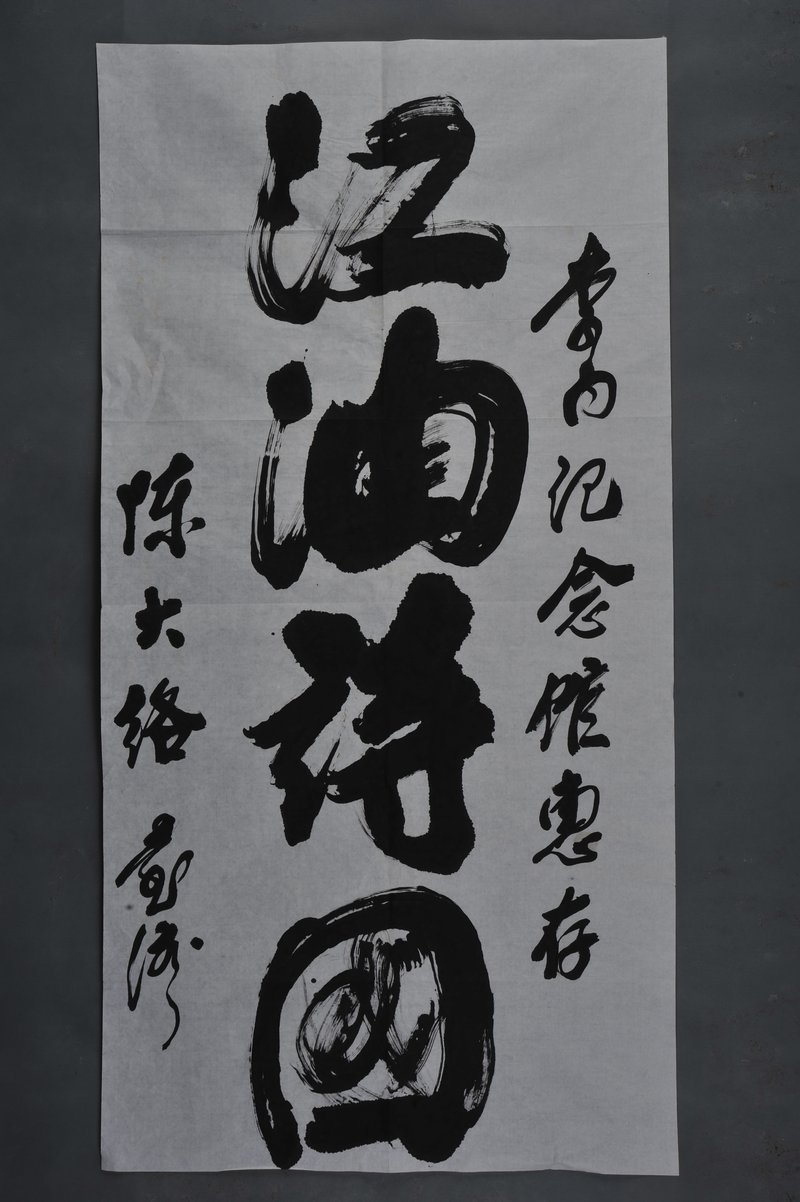 李白纪念馆惠存
江油诗国
陈大络 台湾